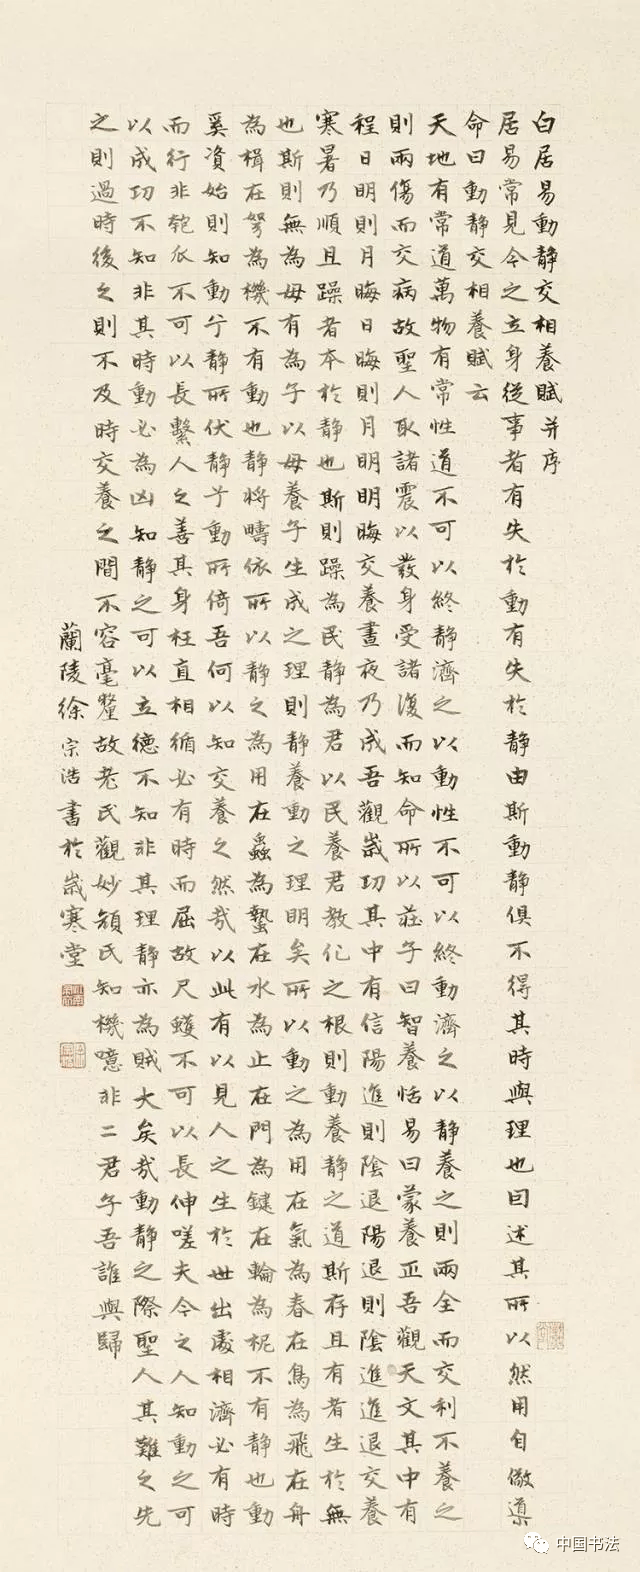 白居易動靜交相養賦并序
居易常見今之立身從事者有失於動有失於靜由斯動靜俱不得其時與理也因述其所以然用自儆導
命曰動靜交相養賦云
天地有常道萬物有常性道不可以終靜濟之以動性不可以終動濟之以靜養之則兩全而交利不養之
則兩傷而交病故聖人取諸震以發身受諸復而知命所以莊子曰智養恬易曰蒙養正吾觀天文其中有
程日明則月晦日晦則月明明晦交養晝夜乃成吾觀歲功其中有信陽進則陰退陽退則陰進進退交養
寒暑乃順且躁者本於靜也斯則躁為民靜為君以民養君教化之根則動養靜之道斯存且有者生於無
也斯則無為母有為子以母養子生成之理則靜養動之理明矣所以動之為用在氣為春在鳥為飛在舟
為楫在弩為機不有動也靜將疇依所以靜之為用在蟲為蟄在水為止在門為鍵在輪為柅不有靜也動
奚資始則知動兮靜所伏靜兮動所倚吾何以知交養之然哉以此有以見人之生於世出處相濟必有時
而行非匏瓜不可以長繫人之善其身枉直相循必有時而屈故尺蠖不可以長伸嗟夫今之人知動之可
以成功不知非其時動必為凶知靜之可以立德不知非其理靜亦為賊大矣哉動靜之際聖人其難之先
之則過時後之則不及時交養之間不容毫釐故老氏觀妙顏氏知機噫非二君子吾誰與歸
蘭陵徐宗浩書於歲寒堂
中国书法